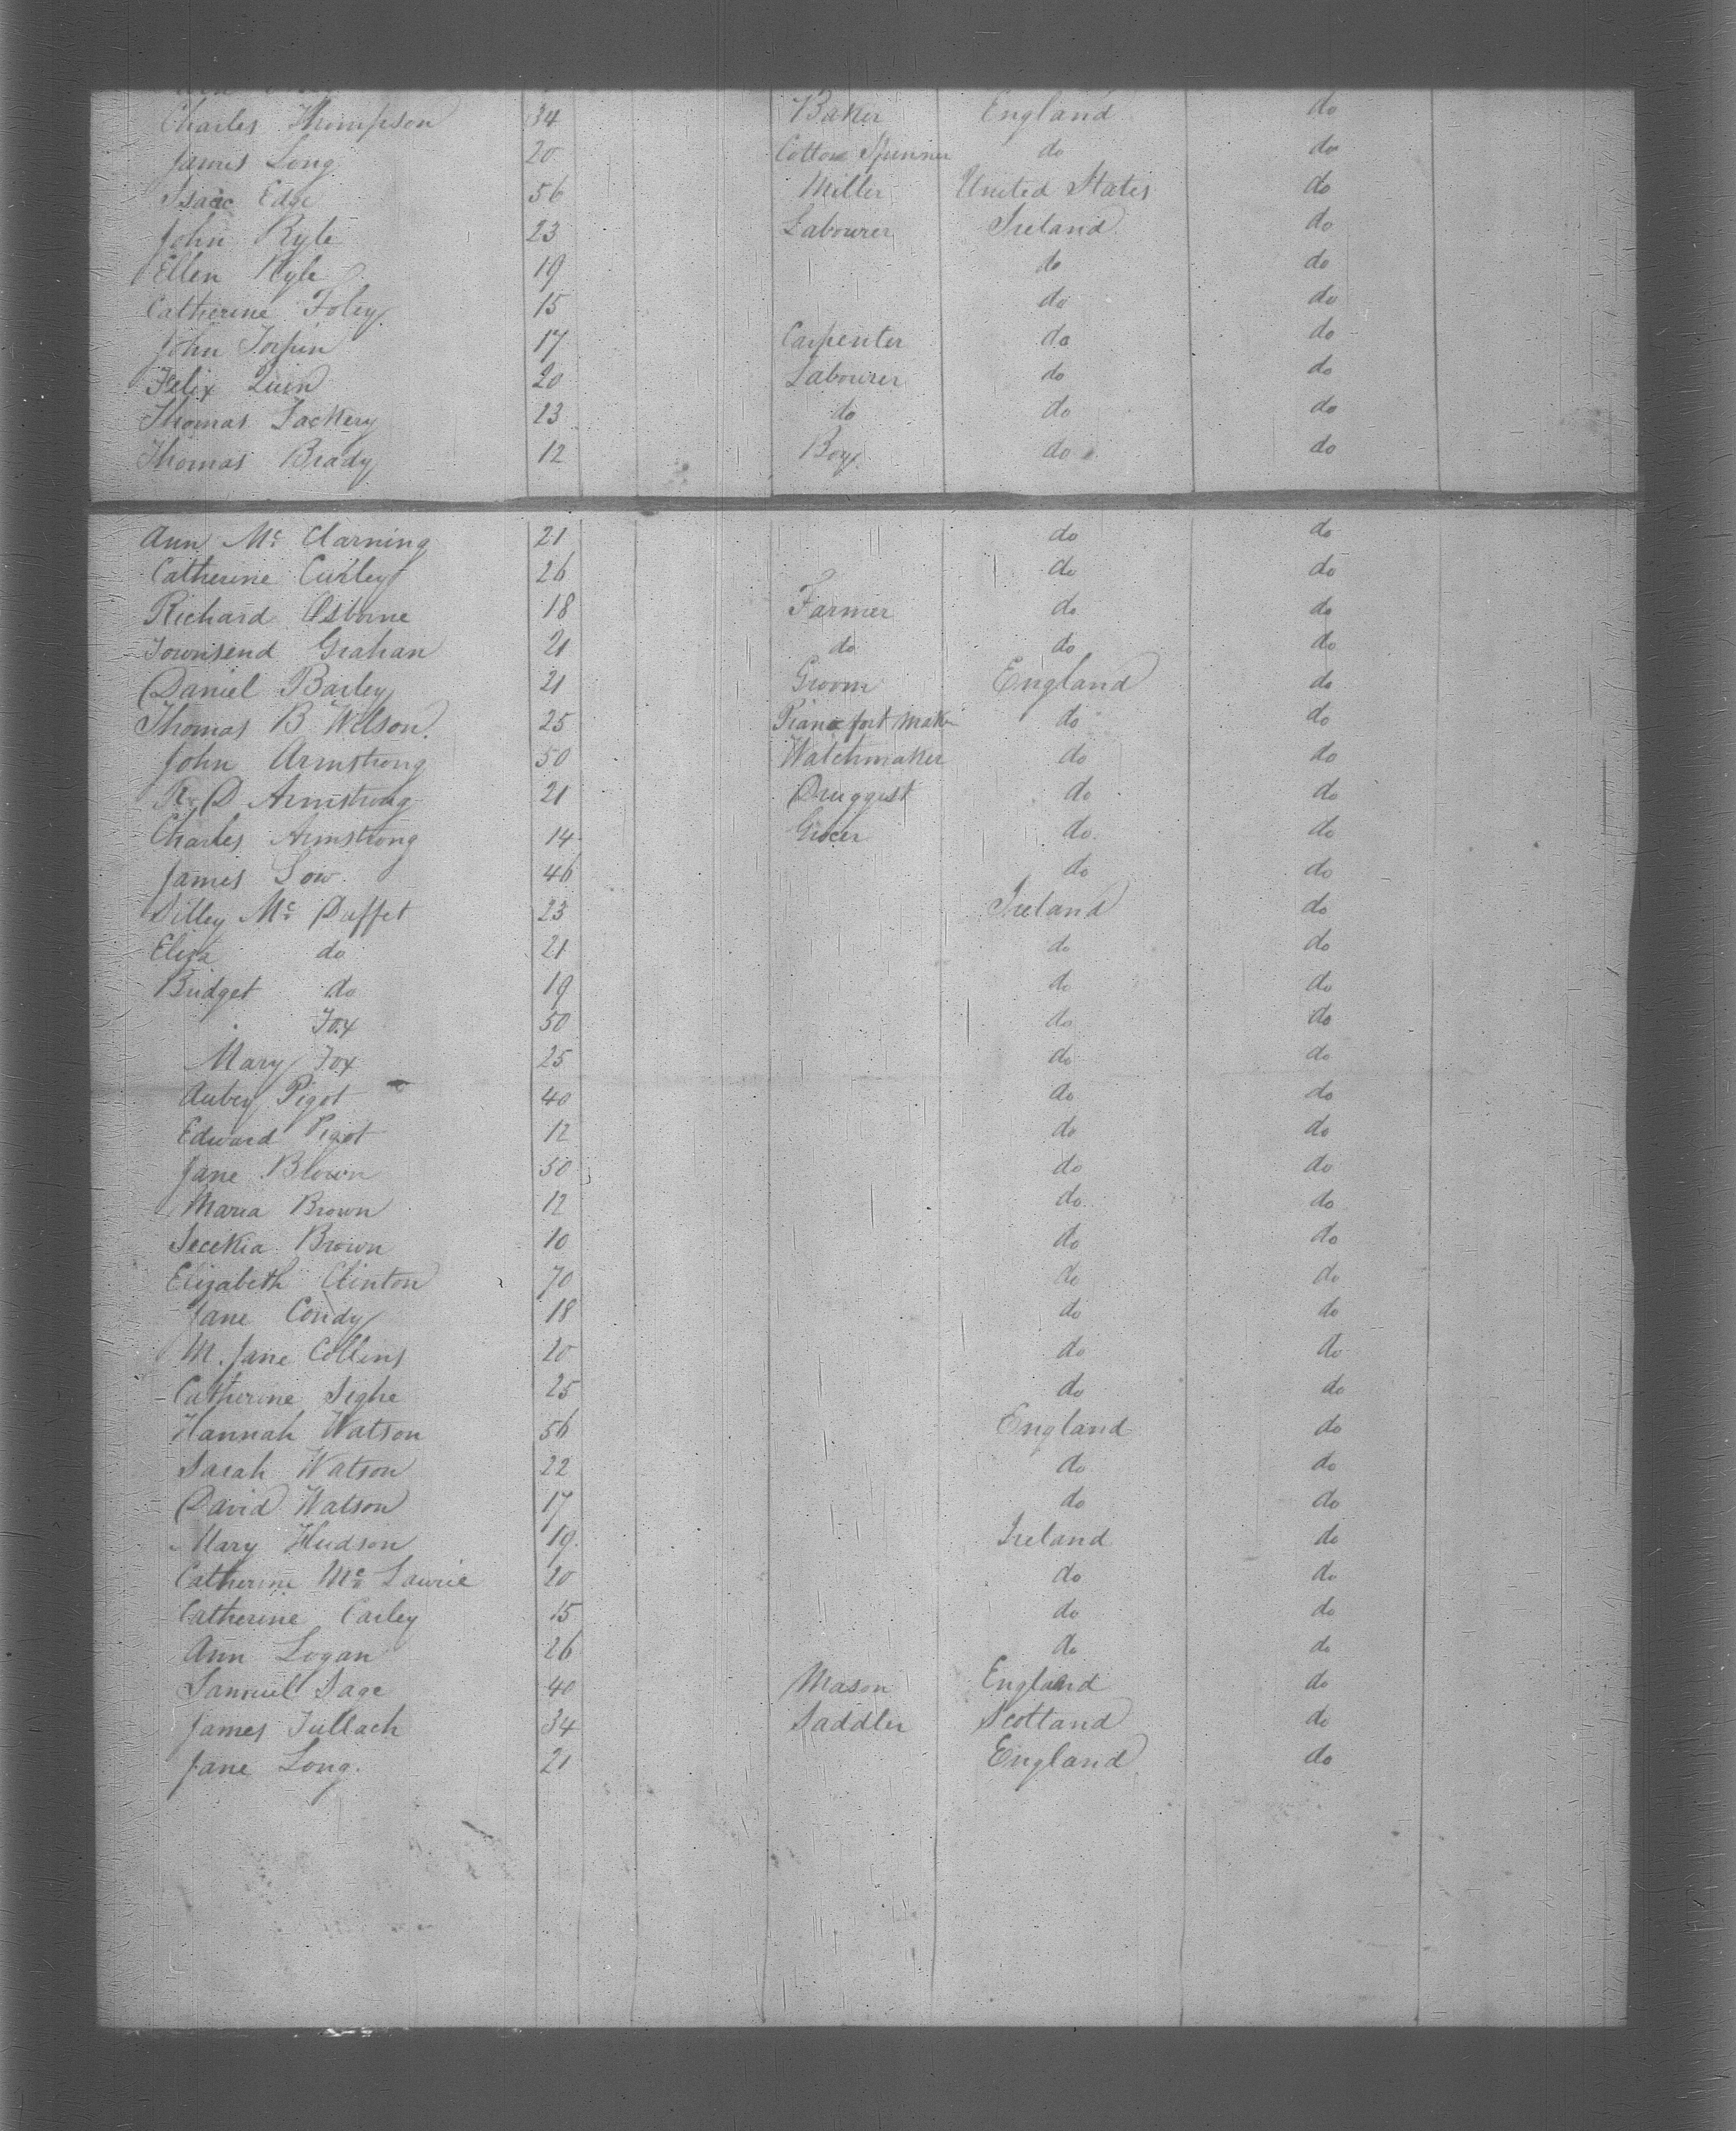 Charles Thompson 34 Baker England do
James Long 20 Cotton Spinner do do
Isaac Edge 56 Miller United States do
John Kyle 23 Labourer Ireland do
Ellen Kyle 19 do do
Catherine Foley 15 do do
John Torpin 17 Carpenter do do
Felix Quin 20 Labourer do do
Thomas Fackery 23 do do do
Thomas Brady 12 Boy do do
Ann Mc Clarning 21 do do
Catherine Curley 26 do do
Richard Osborne 18 Farmer do do
Townsend Grahan 21 do do do
Daniel Barley 21 Groom England do
Thomas B Wilson. 25 Piano fort Maker do do
John Armstrong 50 Watchmaker do do
R. D Armstrong 21 Druggist do do
Charles Armstrong 14 Grocer do do
James Low. 46 do do
Dilley Mc Duffet 23 Ireland do
Eliza do 21 do do
Bridget do 19 do do
Fox 50 do do
Mary Fox 25 do do
Aubey Pigot 40 do do
Edward Pigot 12 do do
Jane Blown 50 do do
Maria Brown 12 do do
Brown 10 do do
Elizabeth Clinton 70 do do
Jane Condy 18 do do
M. Jane Collins 20 do do
Catherine Sighe 25 do do
Hannah Watson 56 England do
Sarah Watson 22 do do
David Watson 17 do do
Mary Hudson 19. Ireland do
Catherine Mc Lawrie 20 do do
Catherine Carley 15 do do
Ann Logan 26 do do
Samuel Sage 40 Mason England do
James Tullach 34 Saddler Scotland do
Jane Long. 21 England do